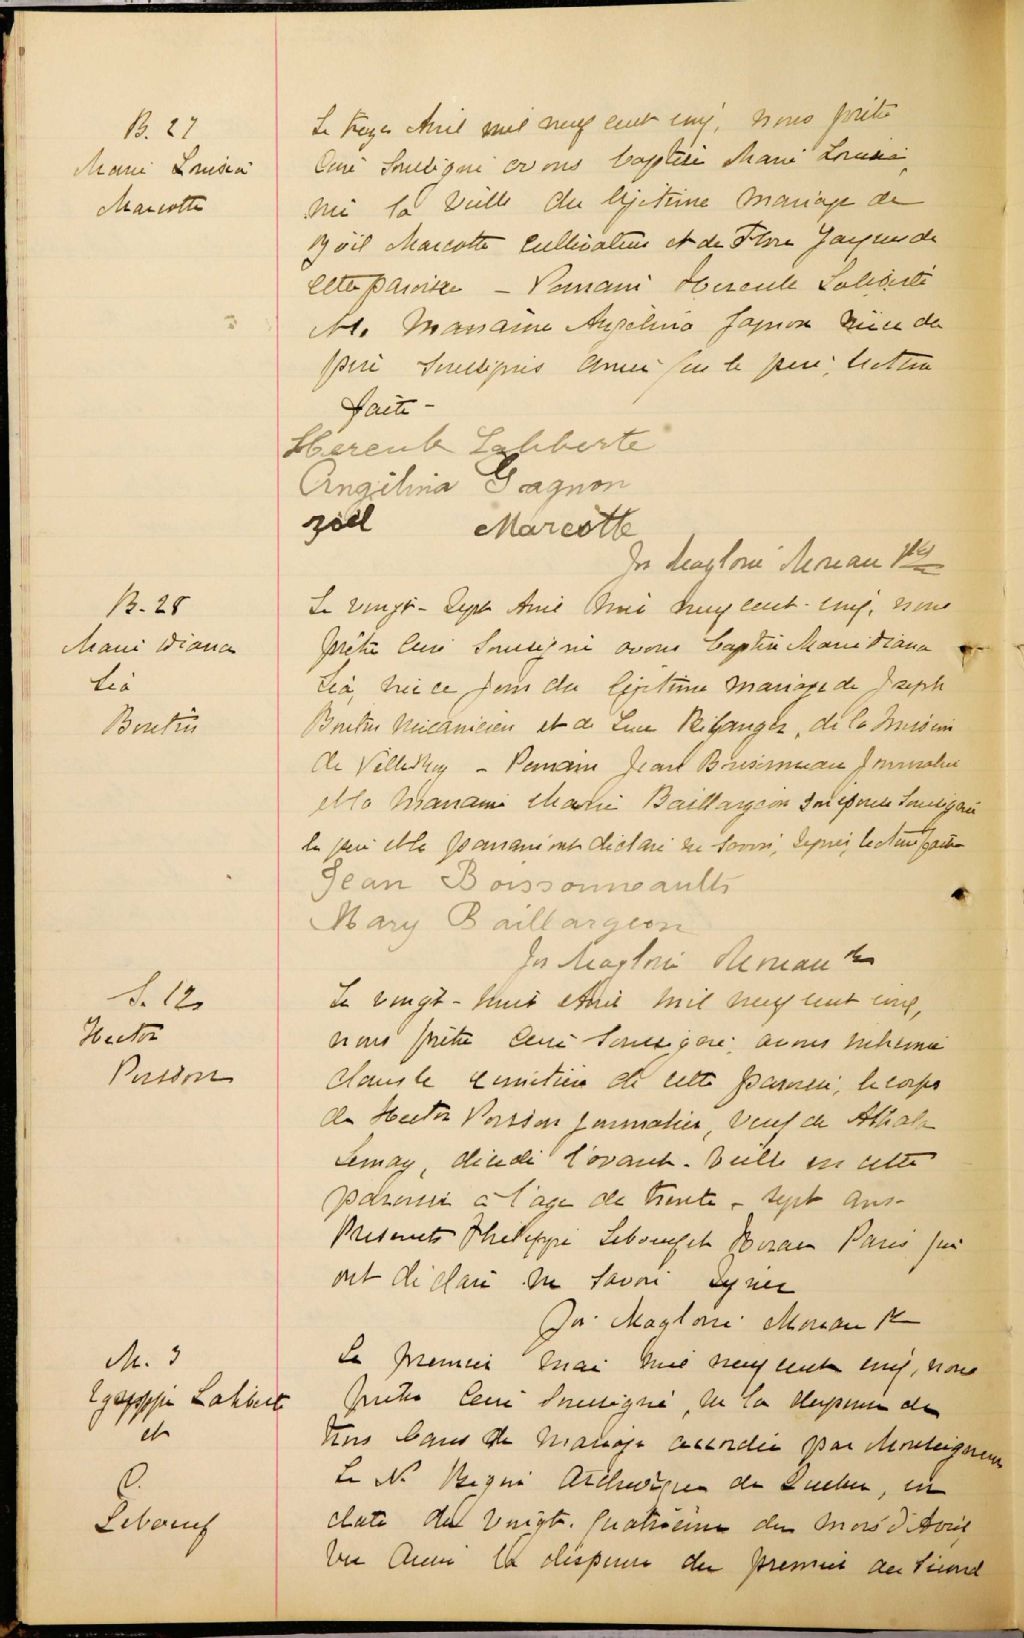 B. 27
Marie Louisia
Marcotte
Le treize Avril mil neuf cent cinq, nous prêtre
Curé soussigné avons baptisé Marie Louisia,
née la veille du légitime mariage de
Zoël Marcotte cultivateur et de Flore Jacques de
cette paroisse – Parrain Hercule Laliberté
Marraine Angelina Gagnon nièce du
père soussignés ainsi que le père, lecture
faite –
Hercule Laliberte
Angelina Gagnon
Zoël Marcotte
Jos Magloire Moreau Ptre
B. 28
Marie Diana
Léa
Boutin
Le vingt-sept Avril mil neuf cent-cinq, nous
prêtre Curé soussigné avons baptisé Marie Diana
Léa, née ce jour du légitime mariage de Joseph
Boutin mécanicien et de Bélanger, de la mission
de Villeroy – Parrain Jean Boissonneau journalier
et la marraine Marie Baillargeon son épouse soussignés
le père et la ont déclaré ne savoir signer, lecture faite
Jean Boissonneault
Mary Baillargeon
Jos Magloire Moreau Ptre
S. 12
Hector
Poisson
Le vingt-huit Avril mil neuf cent cinq,
nous prêtre Curé soussigné, avons inhumé
dans le cimetière de cette paroisse, le corps
de Hector Poisson journalier, veuf de
Lemay, décédé l'avant-veille en cette
paroisse à l'age de trente-sept ans-
Présents Philippe Leboeuf et Paris qui
ont déclaré ne savoir signer
Jos Magloire Moreau Ptre
M. 3
Laliberté
et
O.
Leboeuf
Le premier mai mil neuf cent cinq, nous
prêtre Curé soussigné, vu la dispense de
trois bans de mariage accordée par Monseigneur
L. N. Bégin Archevêque de Québec, en
date du vingt-quatrième du mois d'Avril,
vu aussi la dispense du premier au second